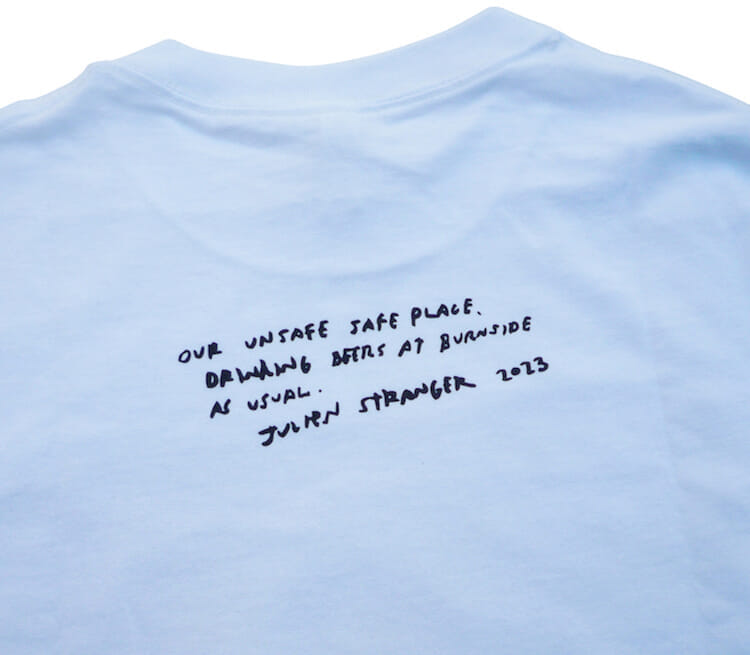 OUR UNSAFE SAFE PLACE.
DRINKING BEERS AT BURNSIDE
AS USUAL.
JULIEN STRANGER 2023